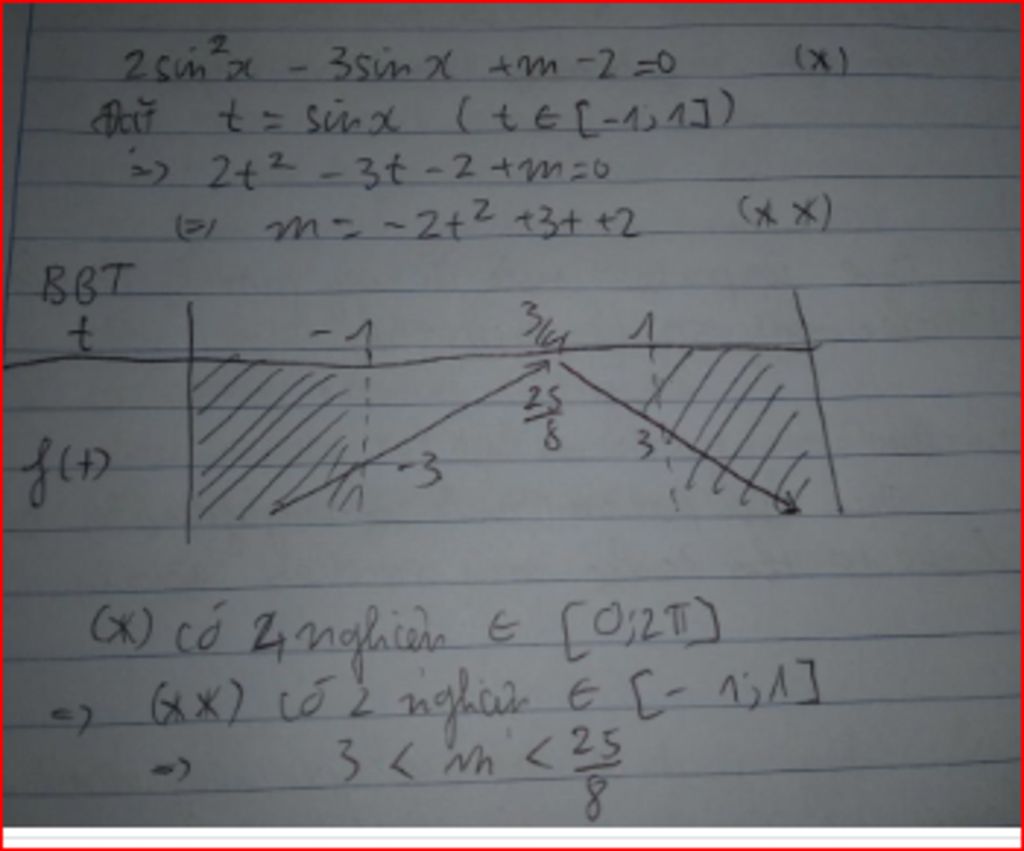 2sin²x - 3sinx + m - 2 = 0 (*)
Đặt t = sinx (t ∈ [-1;1])
=> 2t² - 3t - 2 + m = 0
<=> m = -2t² + 3t + 2 (**)
BBT
t -1 3/4 1
f(t) -3 25/8 3
(*) có 4 nghiệm ∈ [0;2π]
=> (**) có 2 nghiệm ∈ [-1;1]
=> 3 < m < 25/8